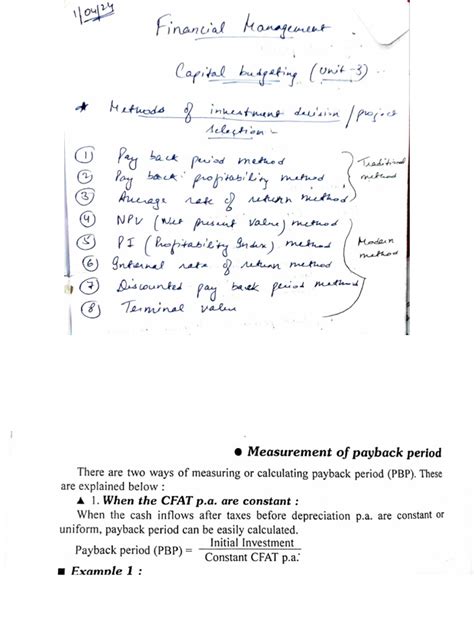 1/04/24
Financial Management
Capital budgeting (Unit-3)
* Methods of investment decision / project
selection -
① Pay back period method
② Pay back profitability method
③ Average rate of return method
Traditional
method
④ NPV (Net present value) method
⑤ PI (Profitability Index) method
⑥ Internal rate of return method
⑦ Discounted pay back period method
⑧ Terminal value
Modern
method
● Measurement of payback period
There are two ways of measuring or calculating payback period (PBP). These
are explained below :
▲ 1. When the CFAT p.a. are constant :
When the cash inflows after taxes before depreciation p.a. are constant or
uniform, payback period can be easily calculated.
Payback period (PBP) = Initial Investment / Constant CFAT p.a.
■ Example 1 :